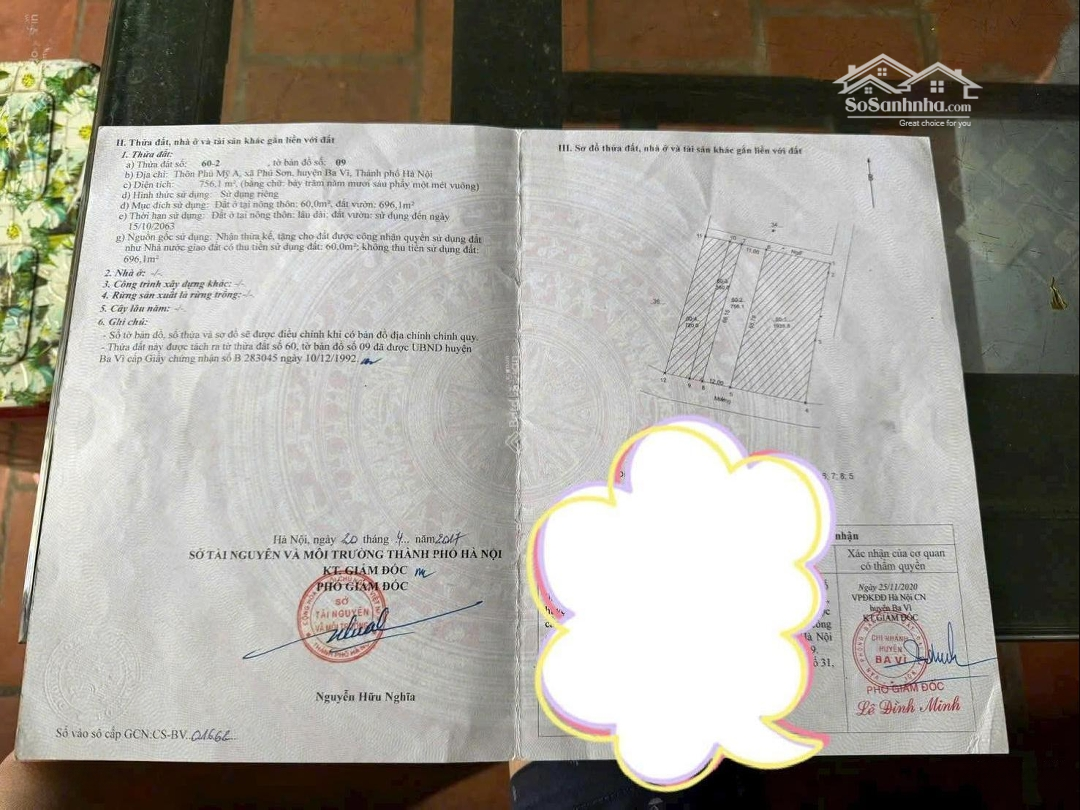 SoSanhnha.com
Great choice for you
II. Thửa đất, nhà ở và tài sản khác gắn liền với đất
1. Thửa đất:
a) Thửa đất số: 60-2 , tờ bản đồ số: 09
b) Địa chỉ: Thôn Phú Mỹ A, xã Phú Sơn, huyện Ba Vì, Thành phố Hà Nội
c) Diện tích: 756,1 m², (bằng chữ: bảy trăm năm mươi sáu phẩy một mét vuông)
d) Hình thức sử dụng: Sử dụng riêng
đ) Mục đích sử dụng: Đất ở tại nông thôn: 60,0m²; đất vườn: 696,1m²
e) Thời hạn sử dụng: Đất ở tại nông thôn: lâu dài; đất vườn: sử dụng đến ngày
15/10/2063
g) Nguồn gốc sử dụng: Nhận thừa kế, tặng cho đất được công nhận quyền sử dụng đất
như Nhà nước giao đất có thu tiền sử dụng đất: 60,0m²; không thu tiền sử dụng đất:
696,1m²
2. Nhà ở: -/-
3. Công trình xây dựng khác: -/-
4. Rừng sản xuất là rừng trồng: -/-.
5. Cây lâu năm: -/-
6. Ghi chú:
- Số tờ bản đồ, số thửa và sơ đồ sẽ được điều chỉnh khi có bản đồ địa chính chính quy.
- Thửa đất này được tách ra từ thửa đất số 60, tờ bản đồ số 09 đã được UBND huyện
Ba Vì cấp Giấy chứng nhận số B 283045 ngày 10/12/1992.
Hà Nội, ngày 20 tháng 4 năm 2017
SỞ TÀI NGUYÊN VÀ MÔI TRƯỜNG THÀNH PHỐ HÀ NỘI
KT. GIÁM ĐỐC
PHÓ GIÁM ĐỐC
SỞ
TÀI NGUYÊN
VÀ MÔI TRƯỜNG
Nguyễn Hữu Nghĩa
Số vào sổ cấp GCN:CS-BV 01662
III. Sơ đồ thửa đất, nhà ở và tài sản khác gắn liền với đất
B
34
11
11.00
Ngõ
1
36
60-2
756.1
12
9
8
12.00
5
4
Mương
7; 8; 5
nhận
Xác nhận của cơ quan
có thẩm quyền
Ngày 25/11/2020
VPĐKĐĐ Hà Nội CN
huyện Ba Vì
KT.GIÁM ĐỐC
CHI NHÁNH
HUYỆN
BA VÌ
PHÓ GIÁM ĐỐC
Lê Đình Minh
Hà Nội
9.
ố 31,